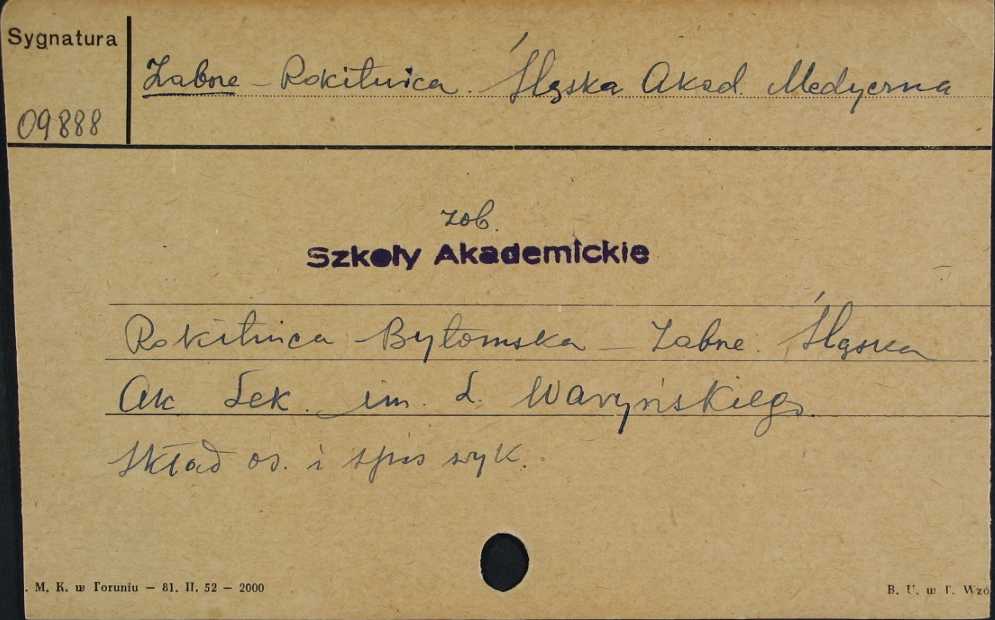 Sygnatura
Zabrze - Rokitnica. Śląska Akad. Medyczna
09888
zob.
Szkoły Akademickie
Rokitnica Bytomska - Zabrze. Śląska
Ak Lek. im. L. Waryńskiego.
Skład os. i spis wyk.
. M. K. w Toruniu — 81. II. 52 — 2000
B. U. w T. Wzó